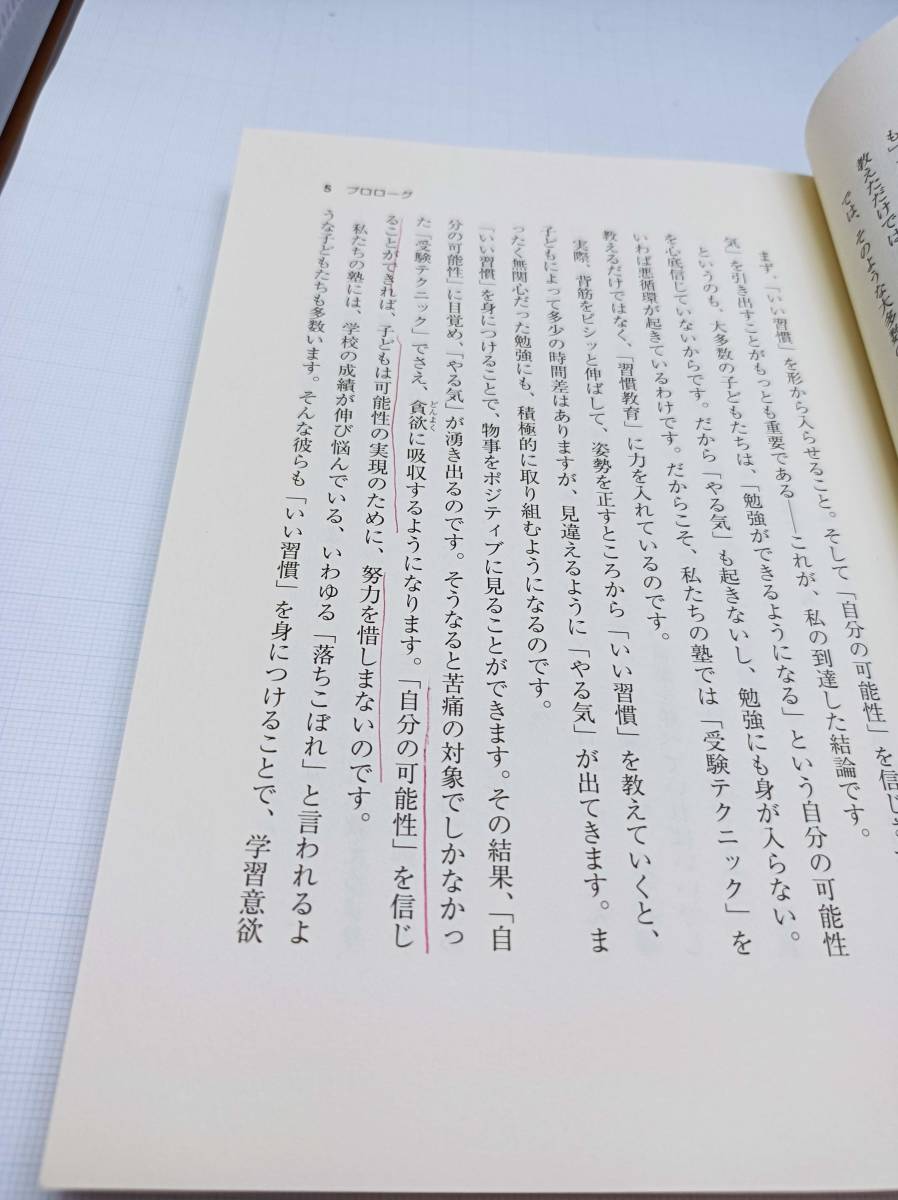 も」
教えただけでは
では、そのような大多数の
5 プロローグ
まず、「いい習慣」を形から入らせること。そして「自分の可能性」を信じさ
気」を引き出すことがもっとも重要である――これが、私の到達した結論です。
というのも、大多数の子どもたちは、「勉強ができるようになる」という自分の可能性
を心底信じていないからです。だから「やる気」も起きないし、勉強にも身が入らない。
いわば悪循環が起きているわけです。だからこそ、私たちの塾では「受験テクニック」を
教えるだけではなく、「習慣教育」に力を入れているのです。
実際、背筋をピシッと伸ばして、姿勢を正すところから「いい習慣」を教えていくと、
子どもによって多少の時間差はありますが、見違えるように「やる気」が出てきます。ま
ったく無関心だった勉強にも、積極的に取り組むようになるのです。
「いい習慣」を身につけることで、物事をポジティブに見ることができます。その結果、「自
分の可能性」に目覚め、「やる気」が湧き出るのです。そうなると苦痛の対象でしかなかっ
た「受験テクニック」でさえ、貪欲どんよくに吸収するようになります。「自分の可能性」を信じ
ることができれば、子どもは可能性の実現のために、努力を惜しまないのです。
私たちの塾には、学校の成績が伸び悩んでいる、いわゆる「落ちこぼれ」と言われるよ
うな子どもたちも多数います。そんな彼らも「いい習慣」を身につけることで、学習意欲